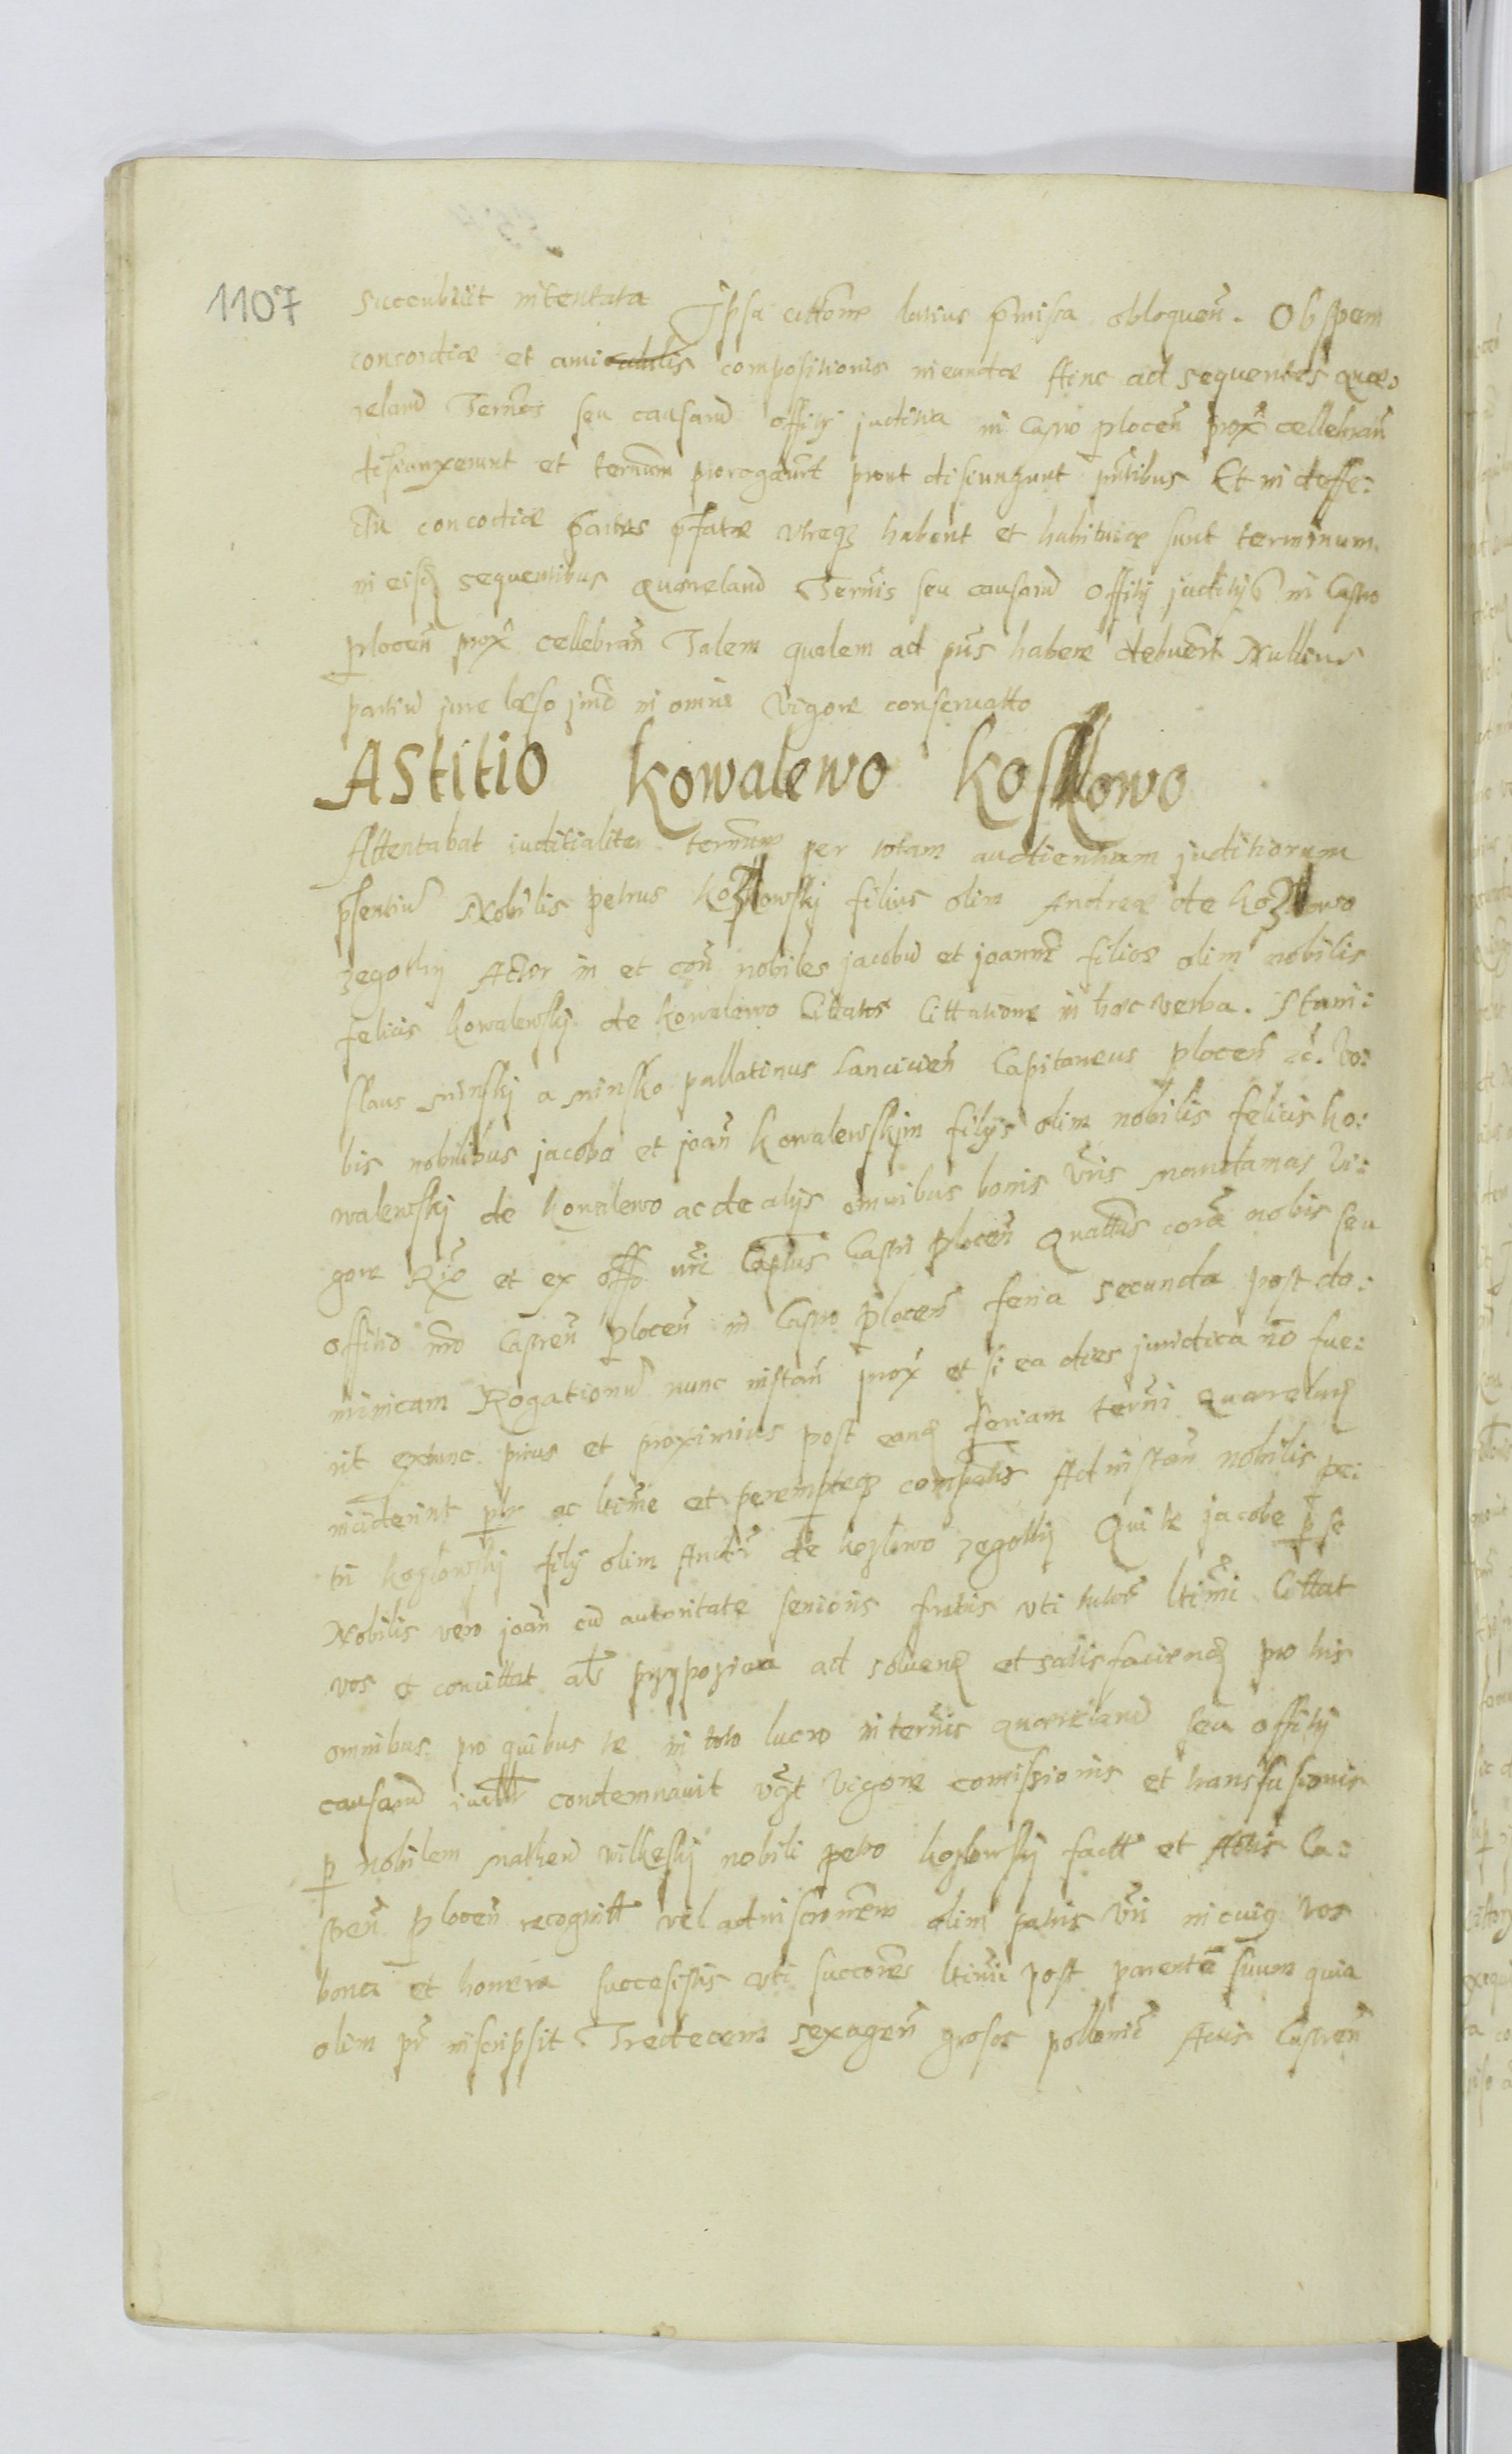 1107
succubuit intentata Ipsa cittone latius pmissa obloquen̄. Ob spem
concordiæ et amicabilis compositionis ineundæ Hinc ad sequentes quæ:
reland Termos seu causarū offity juditia in Castro plocen̄ prox̄ cellebran̄
disiunxerunt et termum prorogaurt prout disiungunt pntibus Et in deffe:
ctu concodiæ partes pfatæ vtræq3 habent et habituræ sunt terminum.
in eisd sequentibus quæreland Termis seu causarū offity juditys in Castro
plocen̄ prox̄ cellebran̄ Talem qualem ad pn̄s habere debuert Nullius
partiū jure læso imo in omni vigore conseruatto
Astitio Kowalewo Koslowo
Attentabat iuditialiter termum per totam audientiam juditiorum
psentiū Nobilis petrus Kozlowskj filius olim Andreæ de Kozlowo
zegothy Actor in et con̄ nobiles jacobū et joannē filios olim nobilis
felicis Kowalewskj de Kowalewo Citatos Cittatione in hæc verba. Stani:
slaus Minskj a Minsko pallatinus Lancicien̄ Capitaneus plocen̄ &c. Vo:
bis nobilibus jacobo et joan̄ Kowalewskjm filys olim nobilis felicis Ko:
walewskj de Kowalewo ac de alys omnibus bonis vr̄is mandamus Vi:
gore Rgio et ex offo nr̄i Captus Castri plocen̄ Quattus corā nobis seu
offitio nr̄o Castren̄ plocen̄ in Castro plocen̄ feria secunda post do:
minicam Rogationū nunc instan̄ prox̄ et si ea dies juridica nō fue:
rit extunc prius et proximius post eand feriam termi quæreland
inciderint pr ac ltime et peremptq3 compatis Ad instan̄ nobilis pe:
tri kozlowskj fily olim Andr̄ de kozlowo zegothy Qui te jacobe p se
Nobilis vero joan̄ cū autoritate senioris fratris vti tutor ltimi Cittat
vos et concittat als przypoziwa ad soluend et satisfaciend pro his
omnibus pro quibus te in toto lucro in termis quæreland seu offity
causarū condemnauit vgt vigore comissionis et transfusionis
p nobilem Matheū wilkeskj nobili petro kozlowskj factt et Actis Ca:
stren̄ plocen̄ recognitt vel ad inscronem olim patris vr̄i in cuig vos
bona et honera successistis vti succores ltimi post parentē suum quia
olim pr inscripsit Tredecem sexagen̄ grosos pollonic̄ Actis Castren̄